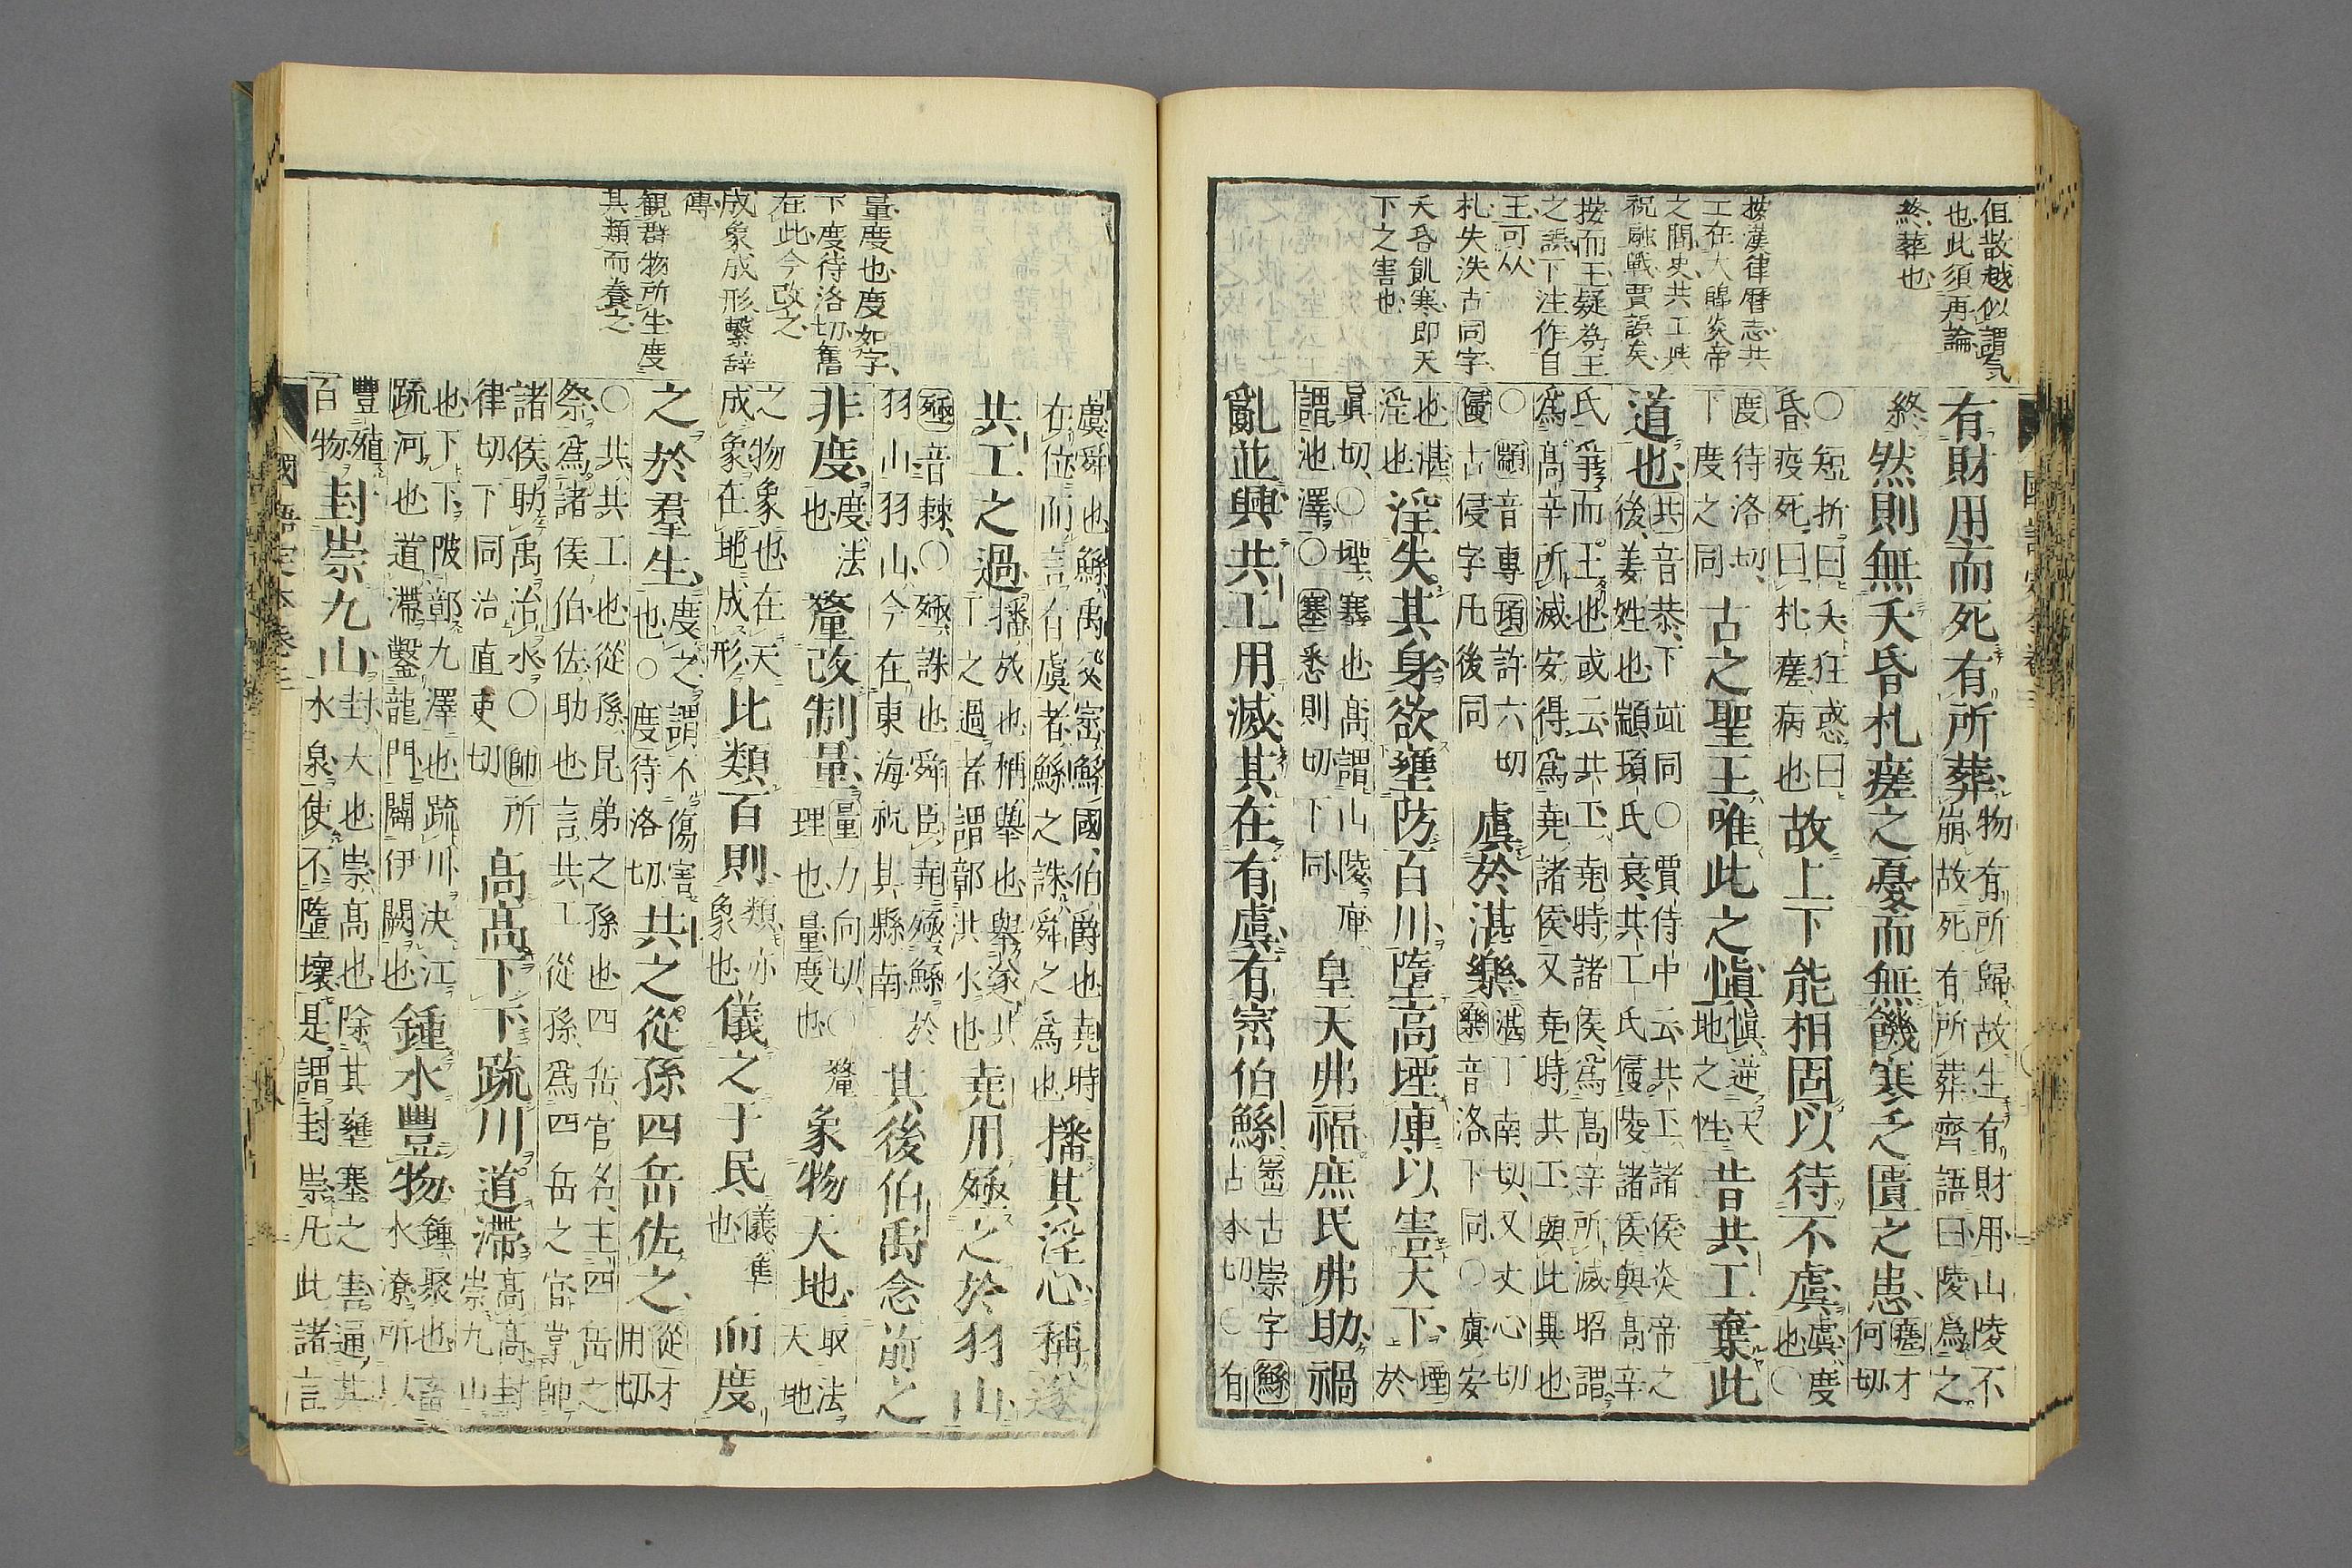 但散越似謂氣
也此須再論
終葬也
按漢律曆志共
工在大皥炎帝
之間史共工與
祝融戰賈誤矣
按而王疑為王
之誤下注作自
王可从
札失泆古同字
夭昏飢寒即天
下之害也
有財用而死有所葬物有所歸故生有財用山陵不崩故死有所葬齊語曰陵爲之
終然則無夭昏札瘥之憂而無饑寒乏匱之患瘥才何切
○短折曰夭狂惑曰昏疫死曰札瘥病也故上下能相固以待不虞虞度也○
度待洛切下度之同古之聖王唯此之愼愼逆天地之性昔共工棄此
道也共音恭下竝同○賈侍中云共工諸侯炎帝之後姜姓也顓頊氏衰共工氏侵陵諸侯與髙辛
氏爭而王也或云共工堯時諸侯爲髙辛所滅昭謂爲髙辛所滅安得爲堯諸侯又堯時共工與此異也
○顓音專頊許六切侵古侵字凡後同虞於湛樂湛丁南切又丈心切樂音洛下同○虞安
也湛淫也淫失其身欲壅防百川墮高堙庳以害天下堙於
眞切○堙塞也髙謂山陵庳謂池澤○塞悉則切下同皇天弗福庶民弗助禍
亂並興共工用滅其在有虞有崈伯鯀崈古崇字鯀古本切○有
國語定本卷三
量度也度如字
下度待洛切舊
在此今改之
成象成形繫辞
傳
観群物所生度
其類而養之
虞舜也鯀禹父崈鯀國伯爵也堯時在位而言有虞者鯀之誅舜之爲也播其淫心稱遂
共工之過播放也稱舉也舉遂共工之過者謂鄣洪水也堯用殛之於羽山
殛音棘○殛誅也舜臣堯殛鯀於羽山羽山今在東海祝其縣南其後伯禹念前之
非度度法也釐改制量量力向切○釐理也量度也象物天地取法天地
之物象也在天成象在地成形比類百則類亦象也儀之于民儀準也而度
之於羣生度之謂不傷害也○度待洛切共之從孫四岳佐之從才用切
○共共工也從孫昆弟之孫也四岳官名主四岳之祭爲諸侯伯佐助也言共工從孫爲四岳之官掌帥
諸侯助禹治水○帥所律切下同治直吏切高高下下疏川道滯髙髙封崇九山
也下下陂鄣九澤也疏川決江疏河也道滯鑿龍門闢伊闕也鍾水豐物鍾聚也畜水潦所以
豐殖百物封崇九山封大也崇髙也除其壅塞之害通其水泉使不墮壞是謂封崇凡此諸言
國語定本卷三